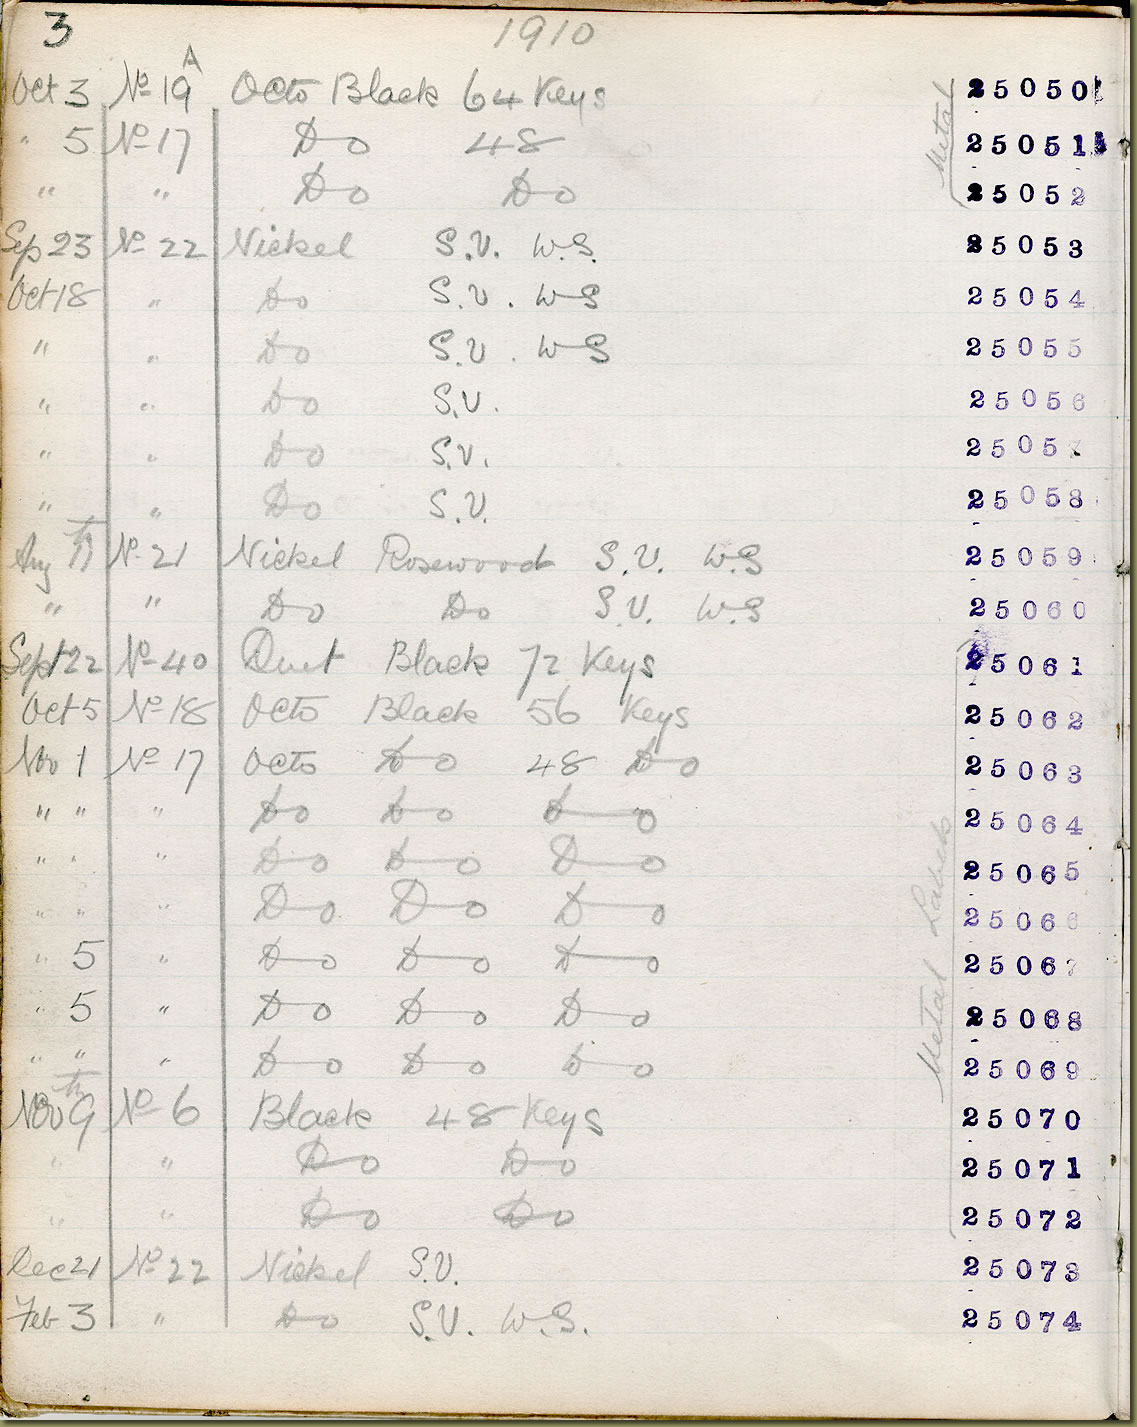 3 1910
Oct 3 No 19A Octo Black 64 Keys 25050
" 5 No 17 Do 48 25051
" " Do Do 25052
Metal
Sep 23 No 22 Nickel S.V. W.S. 25053
Oct 18 " Do S.V. W S 25054
" " Do S.V. W S 25055
" " Do S.V. 25056
" " Do S.V. 25057
" " Do S.V. 25058
Aug No 21 Nickel Rosewood S.V. W.S 25059
" " Do Do S.V. W.S 25060
Sept 22 No 40 Duet Black 72 Keys 25061
Oct 5 No 18 Octo Black 56 Keys 25062
Nov 1 No 17 Octo Do 48 Do 25063
" " " Do Do Do 25064
" " " Do Do Do 25065
" " " Do Do Do 25066
" 5 " Do Do Do 25067
" 5 " Do Do Do 25068
" " " Do Do Do 25069
Metal Labels
Nov 9th No 6 Black 48 Keys 25070
" " Do Do 25071
" " Do Do 25072
Dec 21 No 22 Nickel S.V. 25073
Feb 3 " Do S.V. W.S. 25074